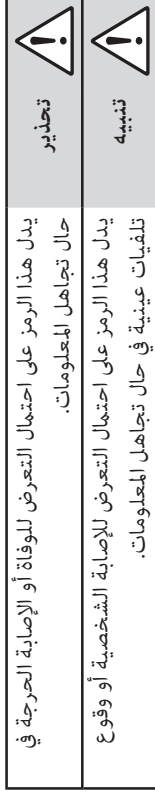 تحذير
يدل هذا الرمز على احتمال التعرض للوفاة أو الإصابة الحرجة في
حال تجاهل المعلومات.
تنبيه
يدل هذا الرمز على احتمال التعرض للإصابة الشخصية أو وقوع
تلفيات عينية في حال تجاهل المعلومات.